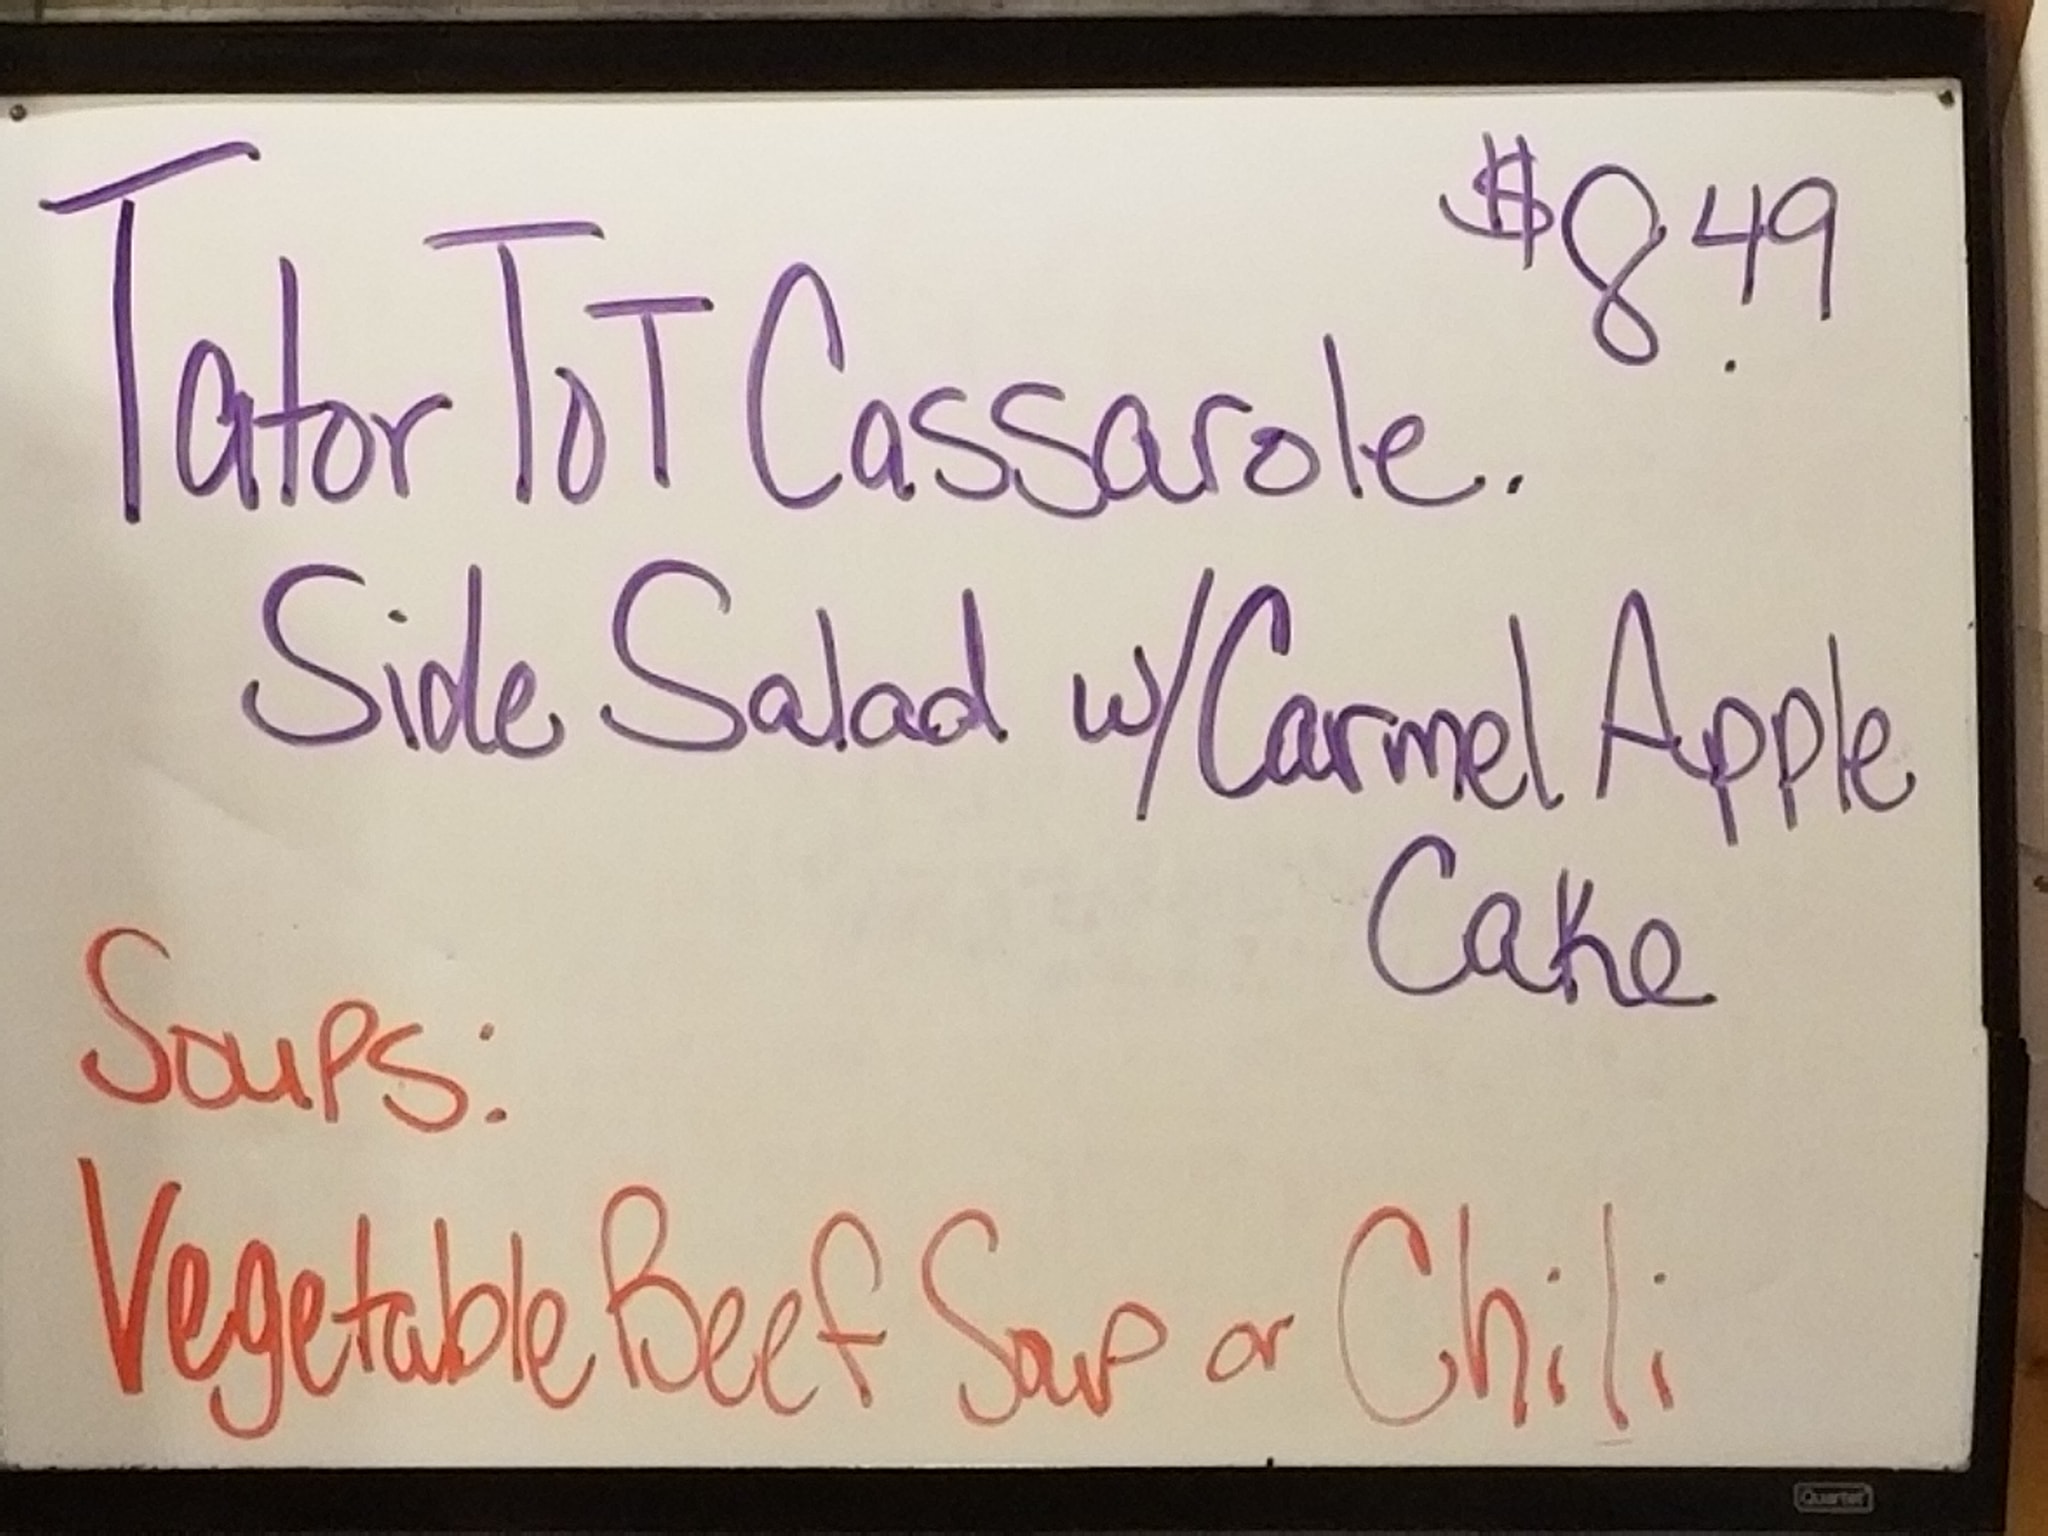 $8.49
Tator Tot Cassarole.
Side Salad w/Carmel Apple
Cake
Soups:
Vegetable Beef Soup or Chili
Quartet